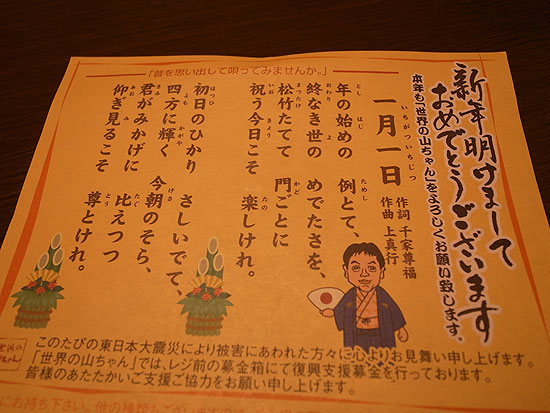 新年明けまして
おめでとうございます
本年も「世界の山ちゃん」をよろしくお願い致します。
「昔を思い出して唄ってみませんか。」
いちがついちじつ
一月一日
作詞 千家尊福
作曲 上真行
とし はじ ためし
年の始めの 例とて、
おわり よ
終なき世の めでたさを、
まつたけ かど
松竹たてて 門ごとに
いお きょう たの
祝う今日こそ 楽しけれ。
はつひ
初日のひかり さしいでて、
よも かがや けさ
四方に輝く 今朝のそら、
きみ たぐ
君がみかげに 比えつつ
あお み とう
仰ぎ見るこそ 尊とけれ。
このたびの東日本大震災により被害にあわれた方々に心よりお見舞い申し上げます。
「世界の山ちゃん」では、レジ前の募金箱にて復興支援募金を行っております。
皆様のあたたかいご支援ご協力をお願い申し上げます。
にお持ち下さい。